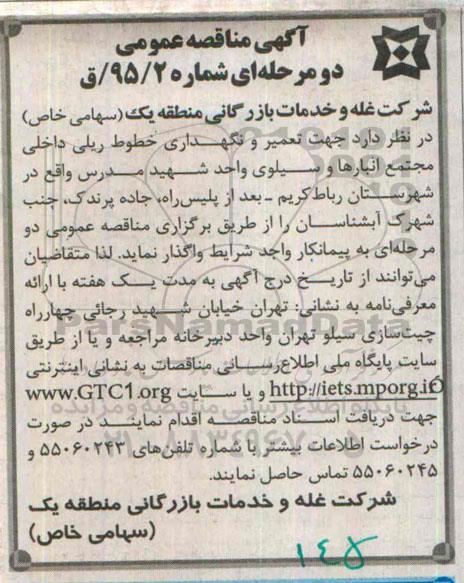 آگهی مناقصه عمومی
دو مرحله‌ای شماره ۹۵/۲/ق
شرکت غله و خدمات بازرگانی منطقه یک (سهامی خاص)
در نظر دارد جهت تعمیر و نگهداری خطوط ریلی داخلی
مجتمع انبارها و سیلوی واحد شهید مدرس واقع در
شهرستان رباط‌کریم ـ بعد از پلیس‌راه، جاده پرندک، جنب
شهرک آبشناسان را از طریق برگزاری مناقصه عمومی دو
مرحله‌ای به پیمانکار واجد شرایط واگذار نماید. لذا متقاضیان
می‌توانند از تاریخ درج آگهی به مدت یک هفته با ارائه
معرفی‌نامه به نشانی: تهران خیابان شهید رجائی چهارراه
چیت‌سازی سیلو تهران واحد دبیرخانه مراجعه و یا از طریق
سایت پایگاه ملی اطلاع‌رسانی مناقصات به نشانی اینترنتی
http://iets.mporg.ir و یا سایت www.GTC1.org
جهت دریافت اسناد مناقصه اقدام نمایند در صورت
درخواست اطلاعات بیشتر با شماره تلفن‌های ۵۵۰۶۰۲۴۳ و
۵۵۰۶۰۲۴۵ تماس حاصل نمایند.
شرکت غله و خدمات بازرگانی منطقه یک
(سهامی خاص)
۱۴۵
ParsNamadData